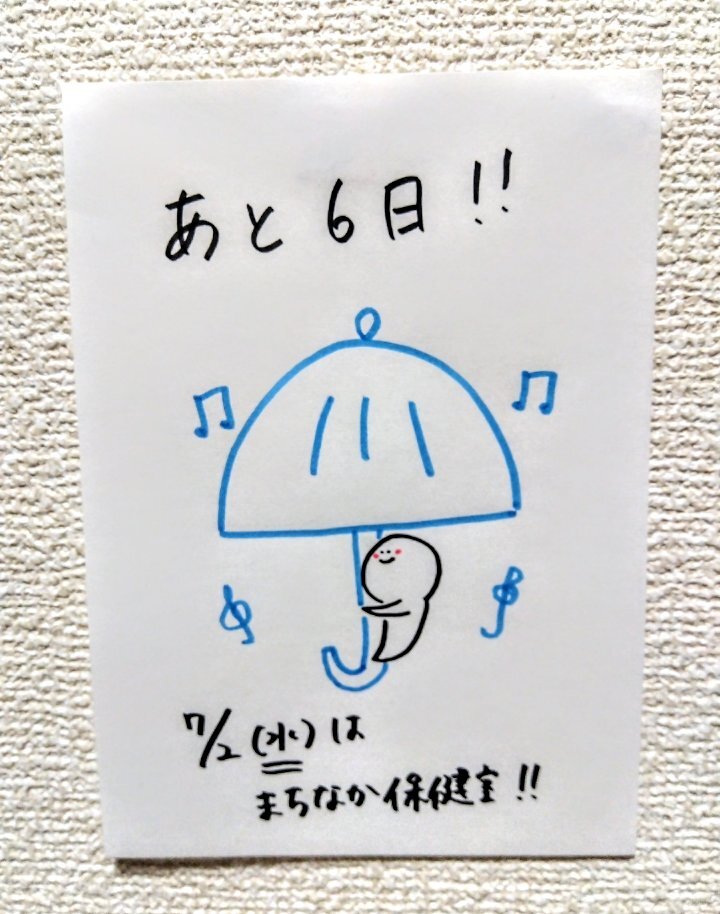 あと6日!!
7/2(水)は
まちなか保健室!!